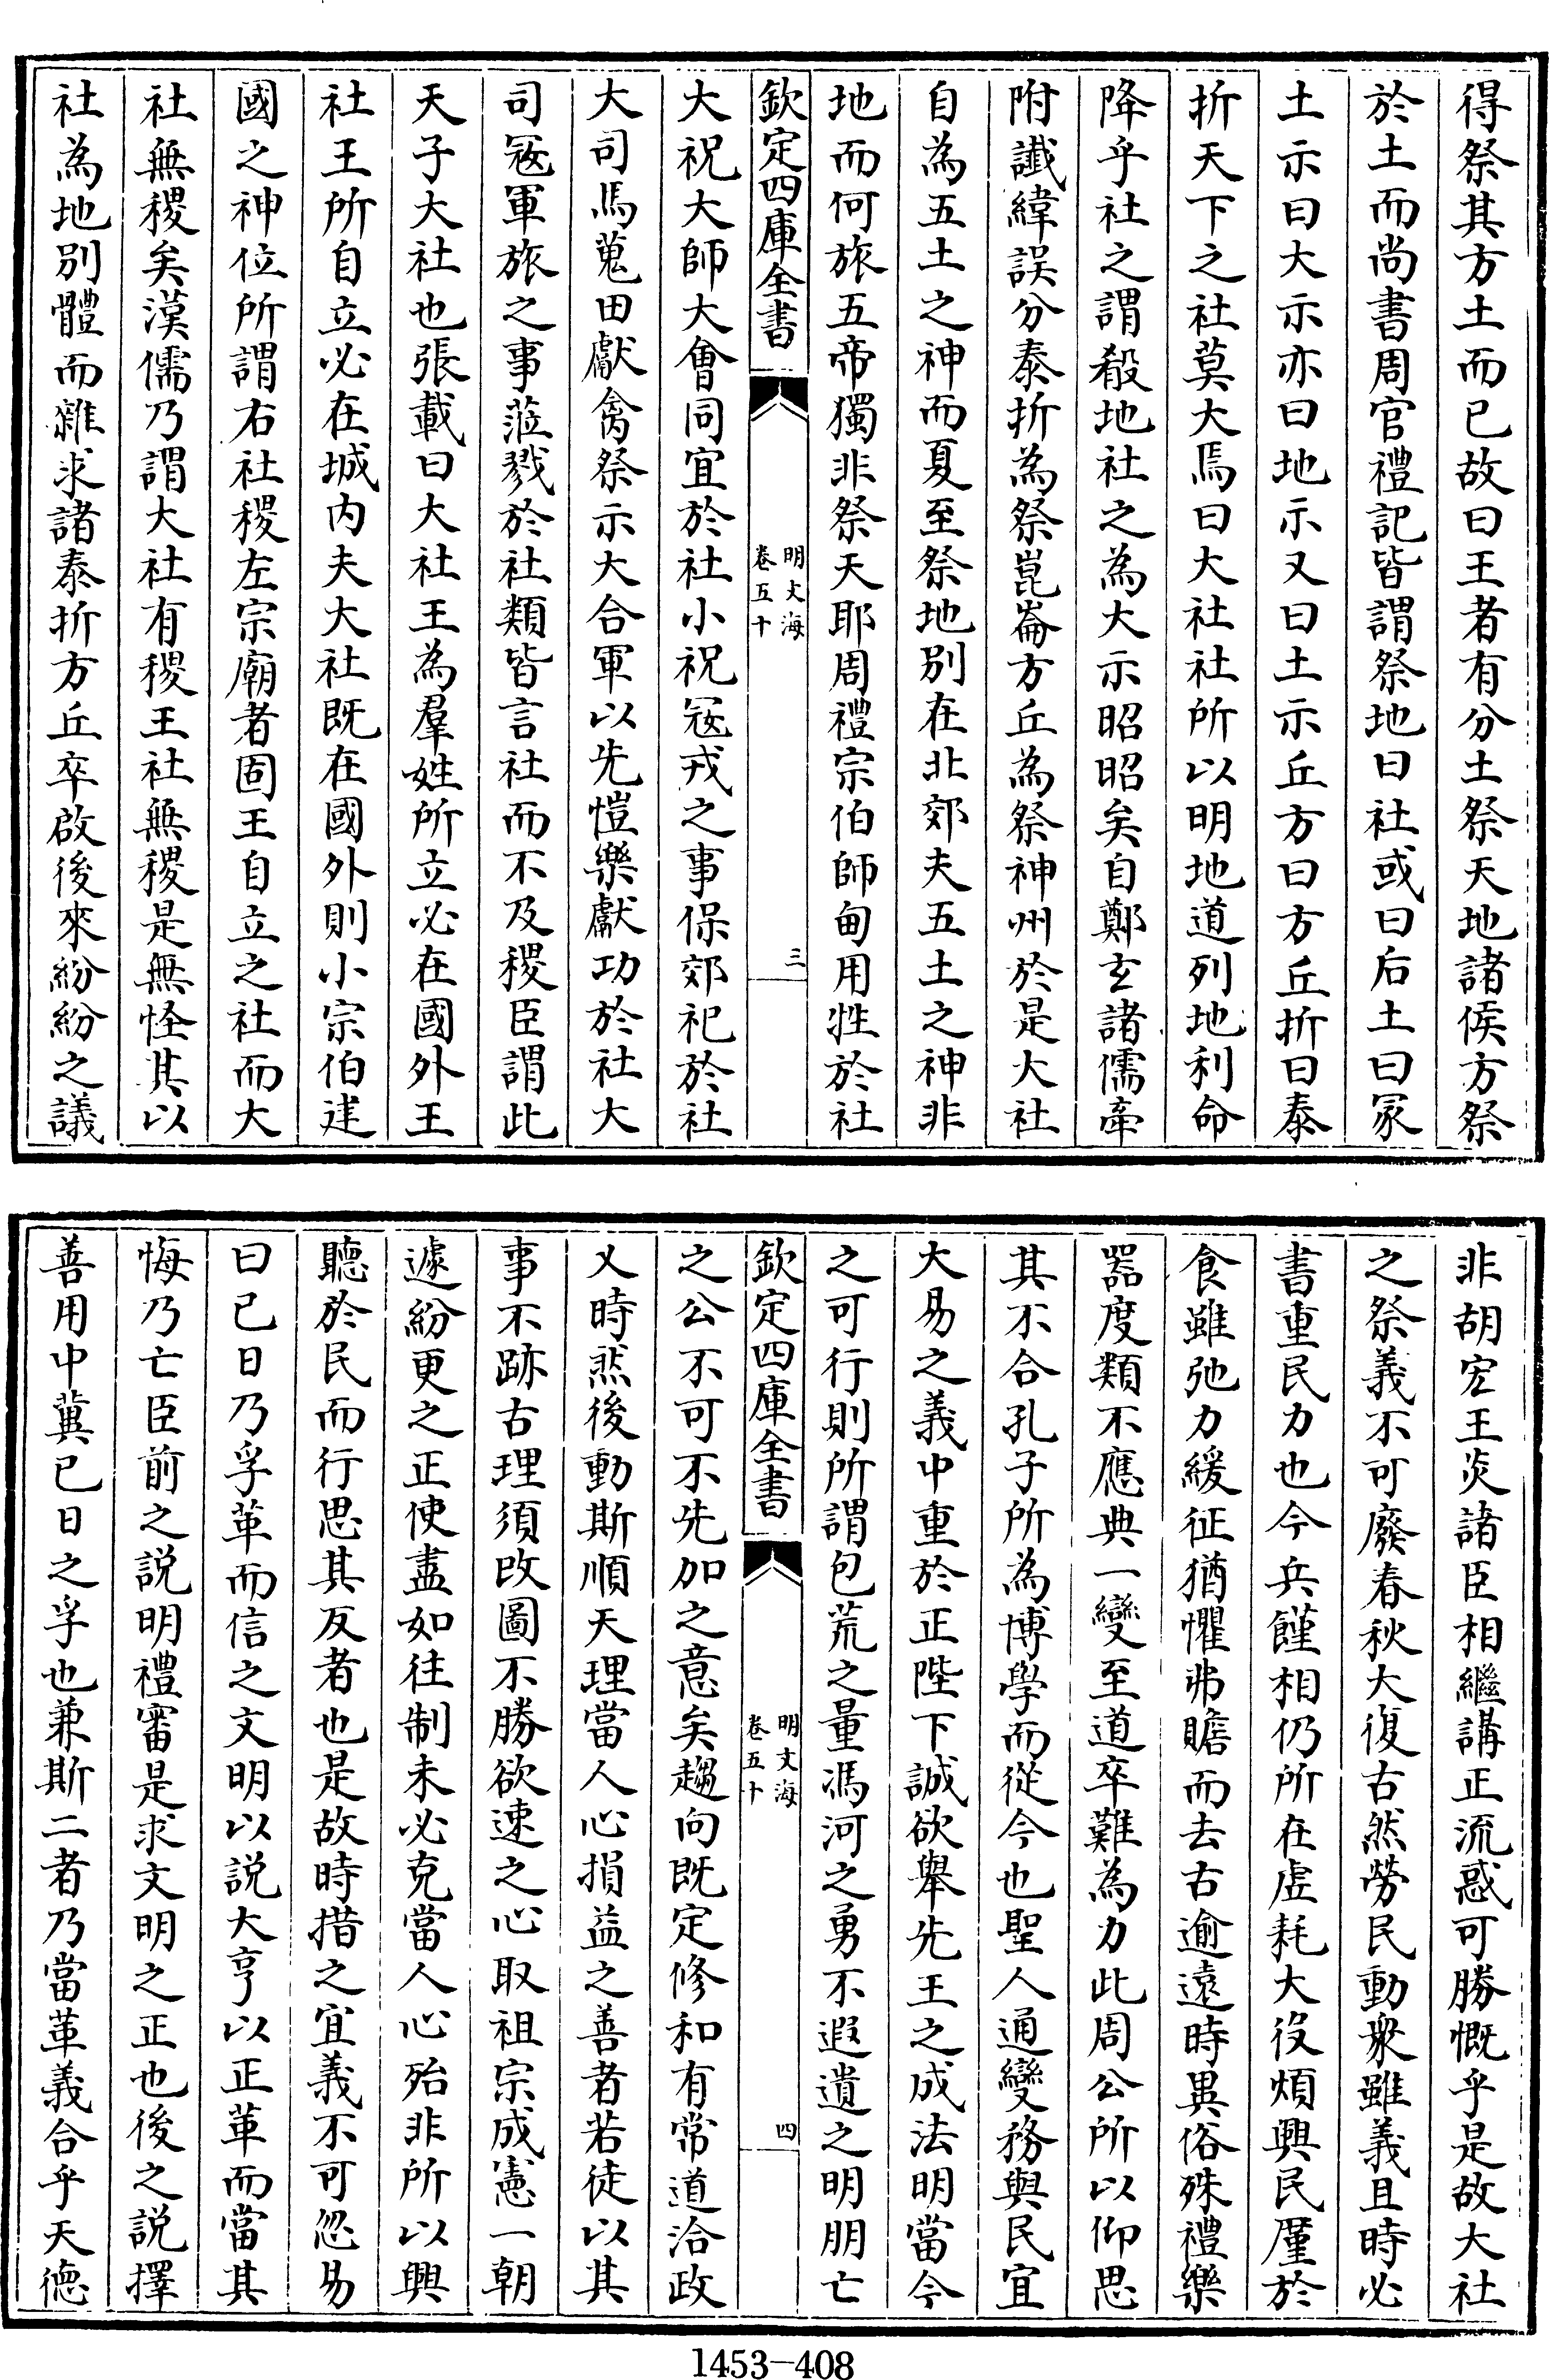 得祭其方土而已故曰王者有分土祭天地諸侯方祭
於土而尚書周官禮記皆謂祭地曰社或曰后土曰冢
土示曰大示亦曰地示又曰土示丘方曰方丘折曰泰
折天下之社莫大焉曰大社社所以明地道列地利命
降乎社之謂殽地社之為大示昭昭矣自鄭玄諸儒牽
附讖緯誤分泰折為祭崑崙方丘為祭神州於是大社
自為五土之神而夏至祭地別在北郊夫五土之神非
地而何旅五帝獨非祭天耶周禮宗伯師甸用牲於社
欽定四庫全書
明文海
卷五十
三
大祝大師大會同宜於社小祝寇戎之事保郊祀於社
大司馬蒐田獻禽祭示大合軍以先愷樂獻功於社大
司寇軍旅之事蒞戮於社類皆言社而不及稷臣謂此
天子大社也張載曰大社王為羣姓所立必在國外王
社王所自立必在城内夫大社既在國外則小宗伯建
國之神位所謂右社稷左宗廟者固王自立之社而大
社無稷矣漢儒乃謂大社有稷王社無稷是無怪其以
社為地別體而雜求諸泰折方丘卒啟後來紛紛之議
非胡宏王炎諸臣相繼講正流惑可勝慨乎是故大社
之祭義不可廢春秋大復古然勞民動衆雖義且時必
書重民力也今兵饉相仍所在虛耗大役煩興民厪於
食雖弛力緩征猶懼弗贍而去古逾遠時異俗殊禮樂
器度類不應典一變至道卒難為力此周公所以仰思
其不合孔子所為博學而從今也聖人通變務與民宜
大易之義中重於正陛下誠欲舉先王之成法明當今
之可行則所謂包荒之量馮河之勇不遐遺之明朋亡
欽定四庫全書
明文海
卷五十
四
之公不可不先加之意矣趨向既定修和有常道洽政
乂時然後動斯順天理當人心損益之善者若徒以其
事不跡古理須改圖不勝欲速之心取祖宗成憲一朝
遽紛更之正使盡如往制未必克當人心殆非所以興
聽於民而行思其反者也是故時措之宜義不可忽易
曰已日乃孚革而信之文明以説大亨以正革而當其
悔乃亡臣前之説明禮審是求文明之正也後之説擇
善用中冀已日之孚也兼斯二者乃當革義合乎天德
1453-408